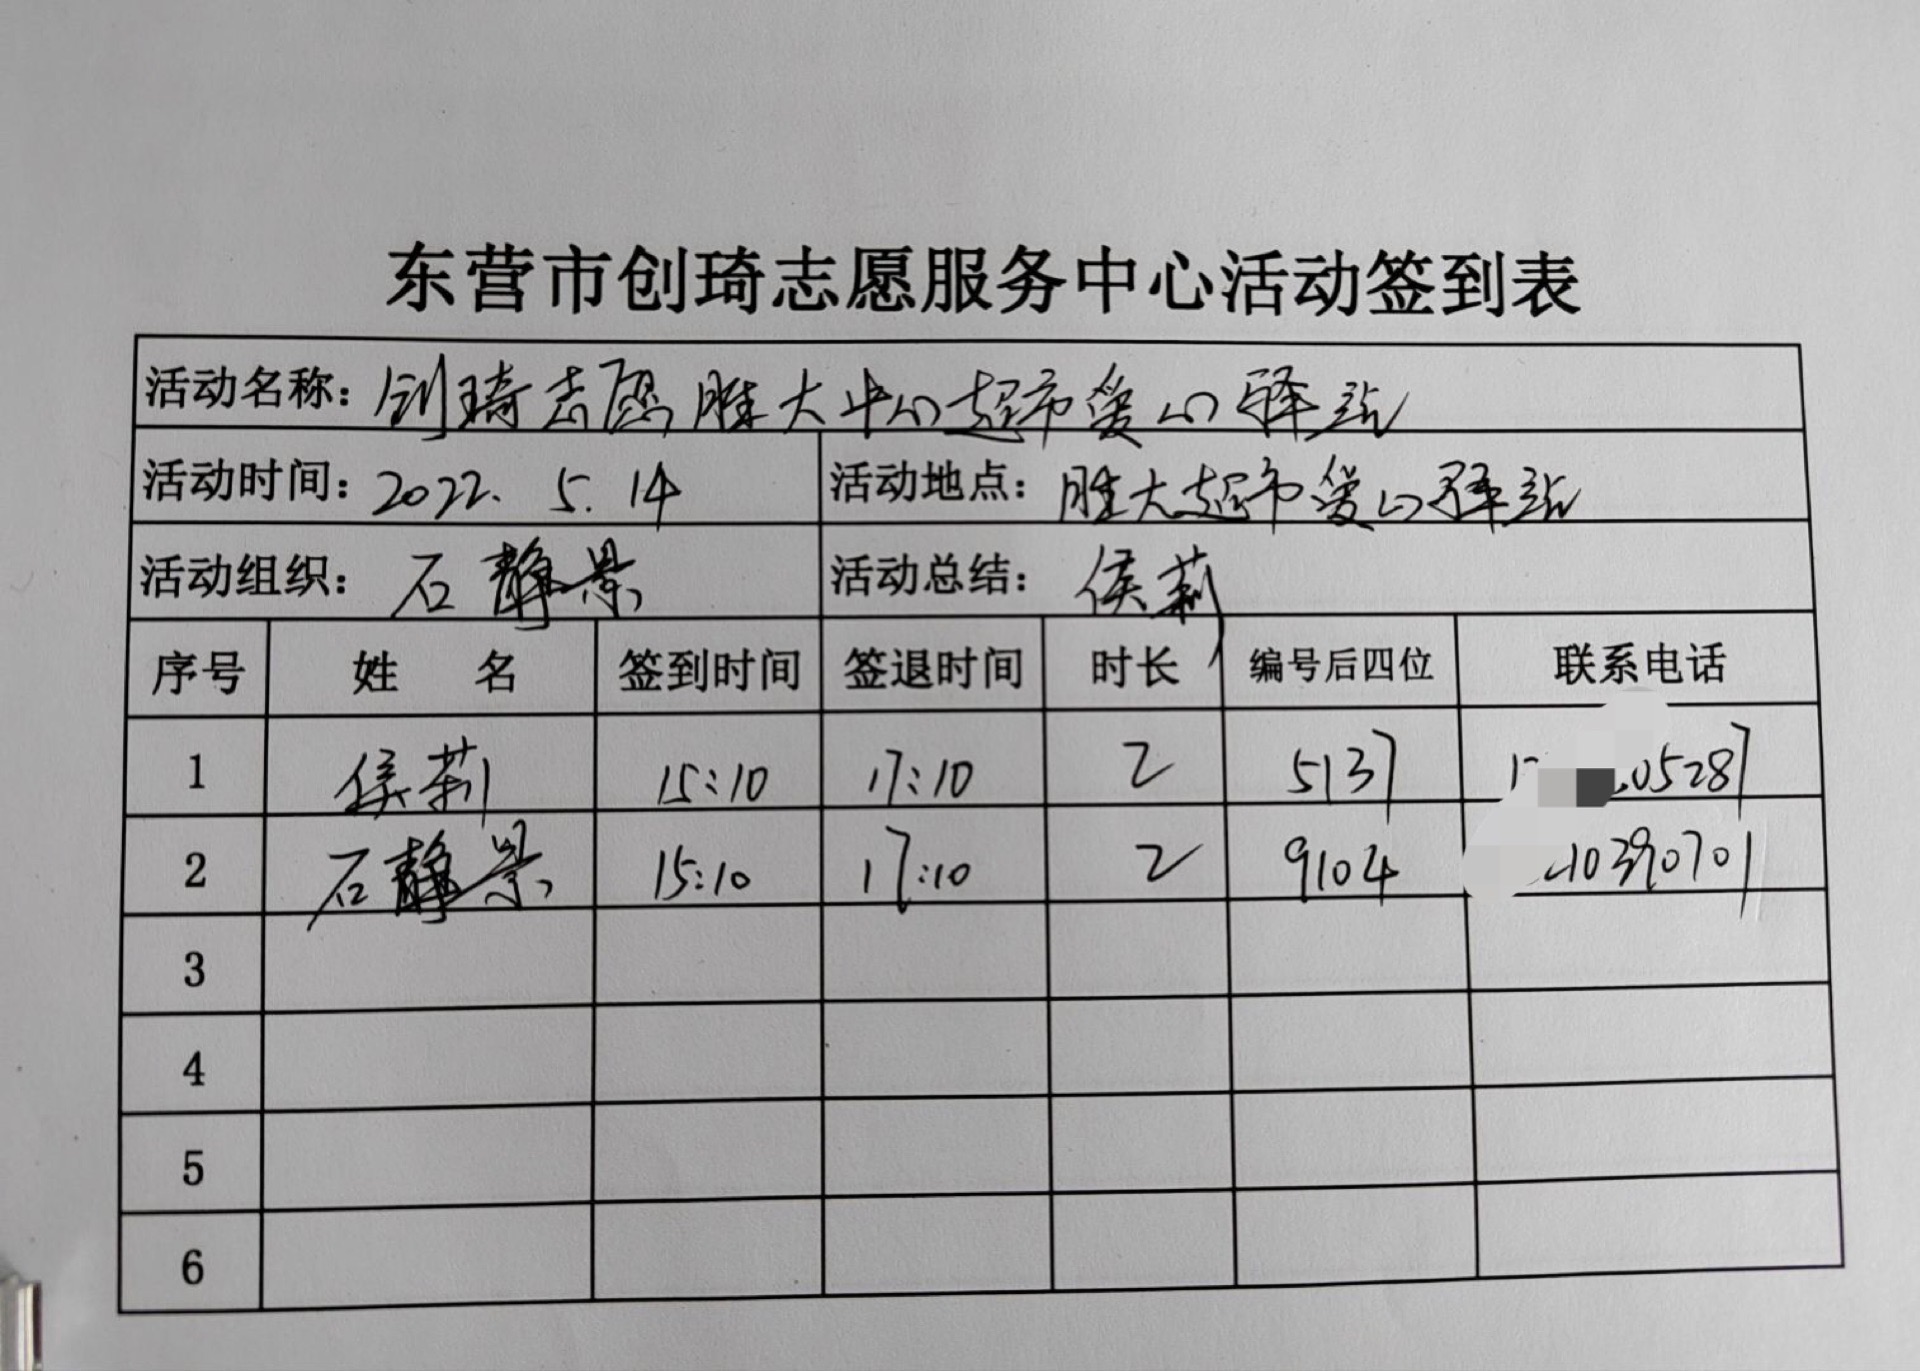 东营市创琦志愿服务中心活动签到表
活动名称：创琦志愿胜大中心超市爱心驿站
活动时间：2022.5.14 活动地点：胜大超市爱心驿站
活动组织：石静景 活动总结：侯莉
序号 姓名 签到时间 签退时间 时长 编号后四位 联系电话
1 侯莉 15:10 17:10 2 5137 05287
2 石静景 15:10 17:10 2 9104 10390701
3
4
5
6